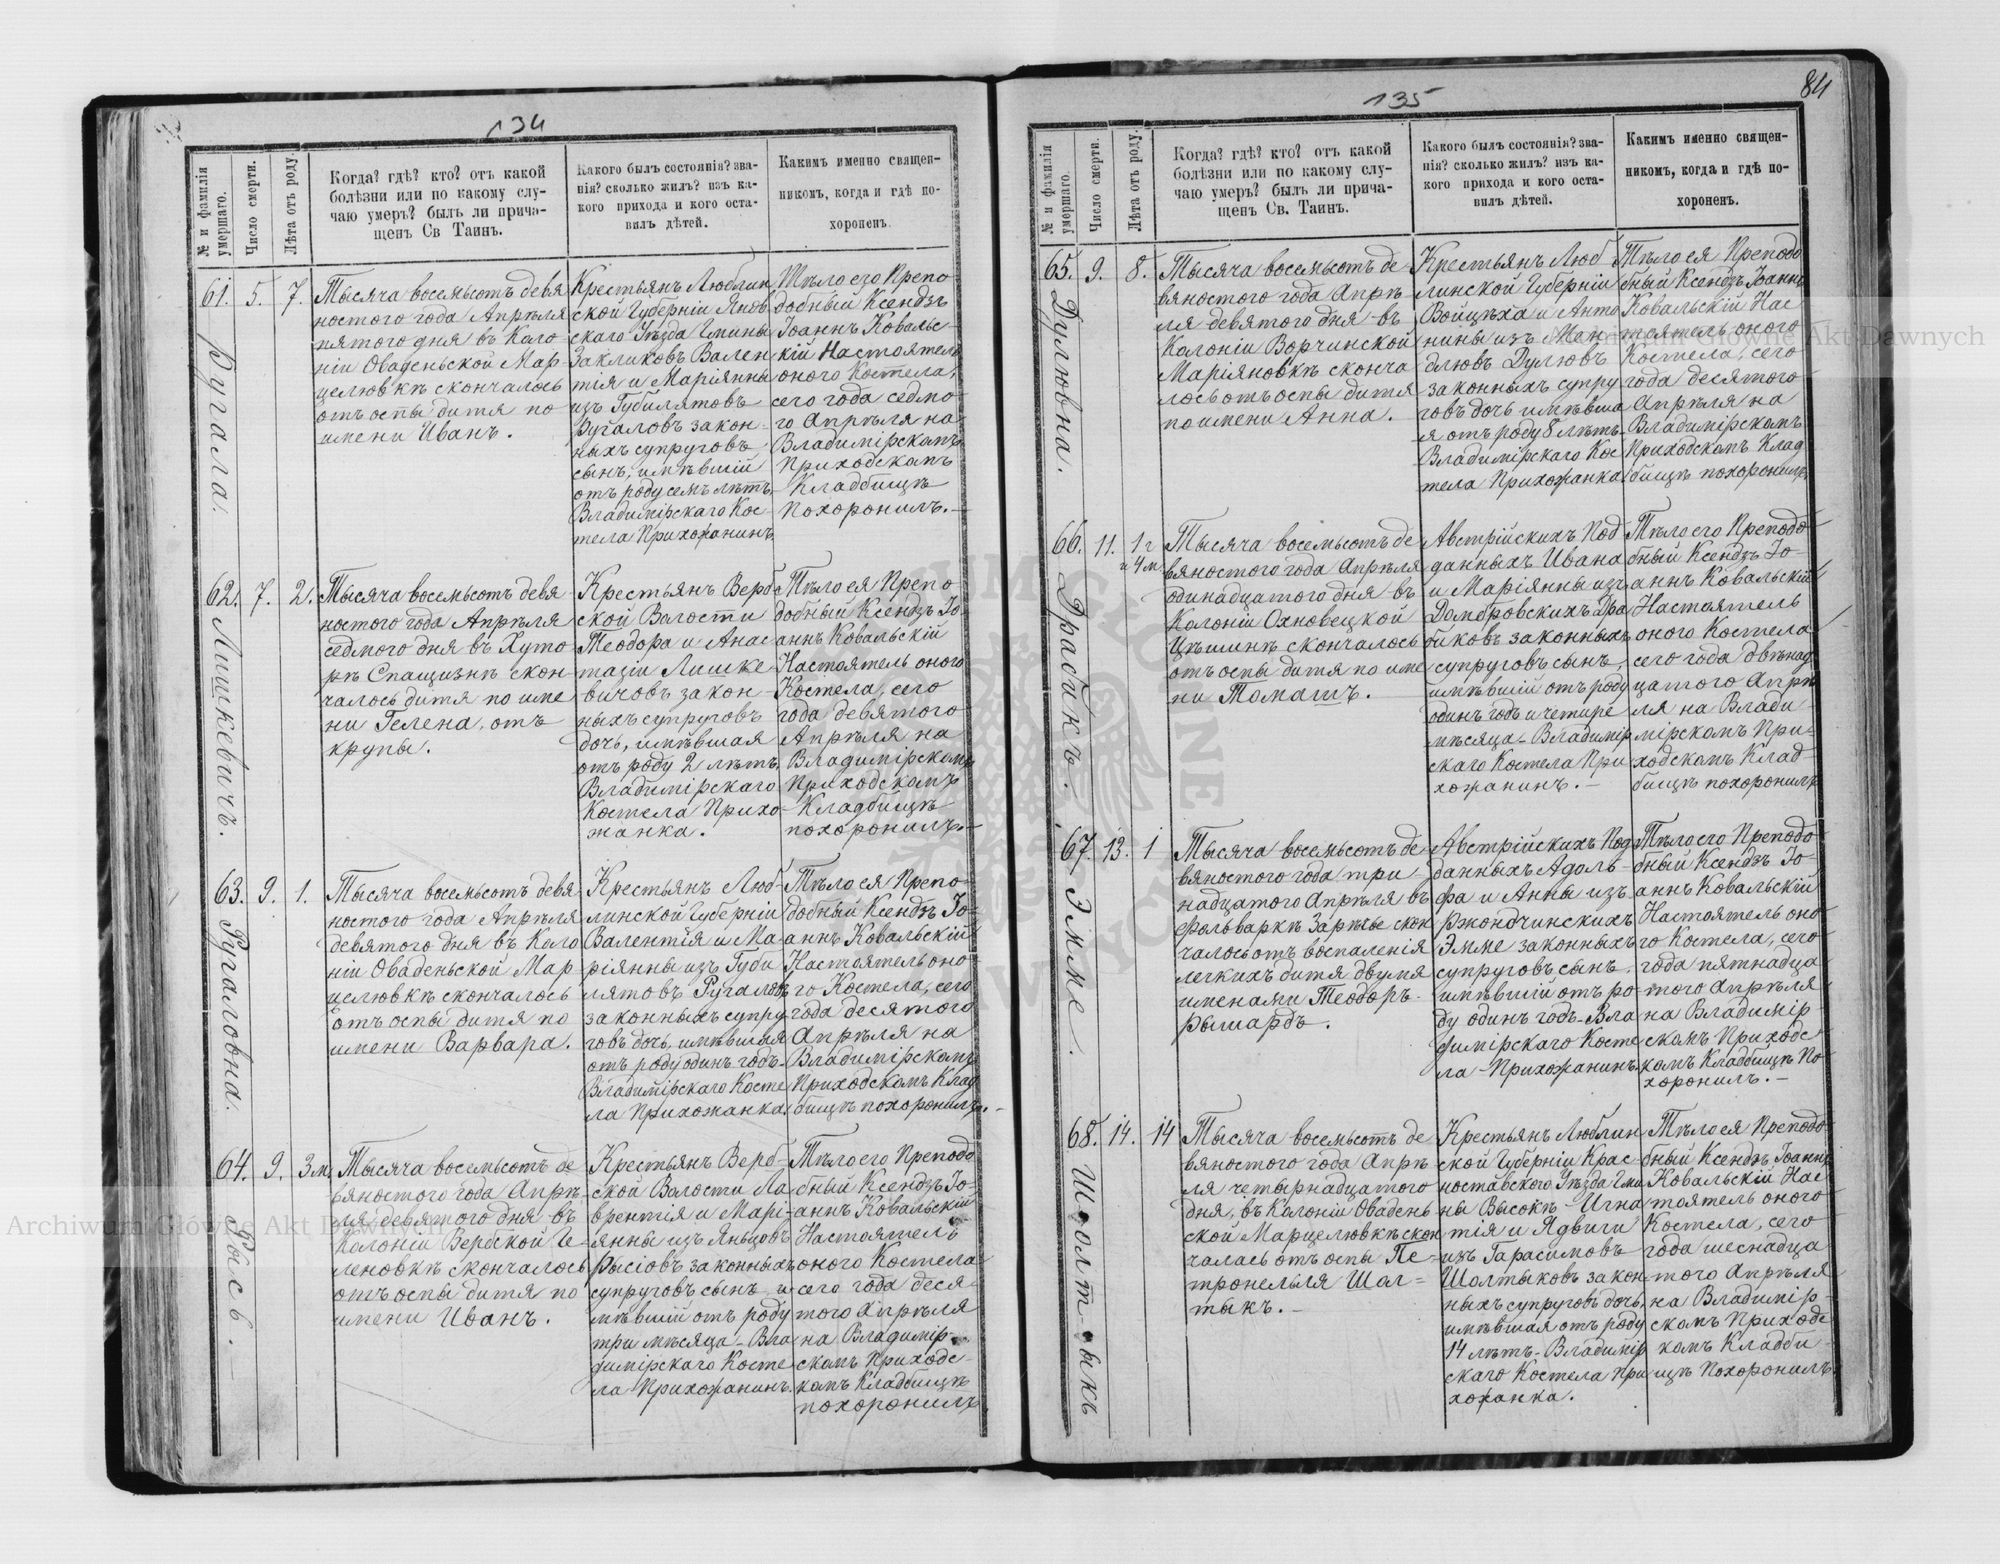 134
№ и фамилія умершаго.
Число смерти.
Лѣта отъ роду.
Когда? гдѣ? кто? отъ какой
болѣзни или по какому слу-
чаю умеръ? былъ ли прича-
щенъ Св Таинъ.
Какого былъ состоянія? зва-
нія? сколько жилъ? изъ ка-
кого прихода и кого оста-
вилъ дѣтей.
Какимъ именно священ-
никомъ, когда и гдѣ по-
хороненъ.
61.
Ругала.
5.
7.
Тысяча восемьсотъ девя
ностого года Апрѣля
пятого дня въ Коло
ніи Оваденьской Мар
целювкѣ скончалось
отъ оспы дитя по
имени Иванъ.
Крестьянъ Люблин
ской Губерніи Янов
скаго Уѣзда Гмины
Закликовъ Вален
тія и Маріянны
изъ Губилятовъ
Ругаловъ закон-
ныхъ супруговъ
сынъ, имѣвшій
отъ роду семъ лѣтъ,
Владимірскаго Кос
тела Прихожанинъ
Тѣло его Препо
добный Ксендзъ
Іоаннъ Ковальс-
кій Настоятель
оного Костела,
сего года седмо-
го Апрѣля на
Владимірскомъ
Приходскомъ
Кладбищѣ
Похоронилъ.-
62.
Лишкевичъ.
7.
2.
Тысяча восемьсотъ девя-
ностого года Апрѣля
седмого дня въ Хуто-
рѣ Спащизнѣ скон-
чалось дитя по име
ни Гелена, отъ
крупы.
Крестьянъ Верб-
ской Волости
Теодора и Анас
тазіи Лишке-
вичовъ закон-
ныхъ супруговъ
дочь, имѣвшая
отъ роду 2 лѣтъ,
Владимірскаго
Костела Прихо-
жанка.
Тѣло ея Препо
добный Ксендзъ Іо-
аннъ Ковальскій
Настоятель оного
Костела, сего
года девятого
Апрѣля на
Владимірскомъ
Приходскомъ
Кладбищѣ
похоронилъ.-
63.
Ругаловна.
9.
1.
Тысяча восемьсотъ девя
ностого года Апрѣля
девятого дня въ Коло
ніи Оваденьской Мар
целювкѣ скончалось
отъ оспы дитя по
имени Варвара.
Крестьянъ Люб-
линской Губерніи
Валентія и Ма-
ріянны изъ Губи
лятовъ Ругаловъ
законныхъ супру-
говъ дочь, имѣвшая
отъ роду одинъ годъ-
Владимірскаго Косте
ла Прихожанка.
Тѣло ея Препо-
добный Ксендзъ Іо-
аннъ Ковальскій
Настоятель оно-
го Костела, сего
года десятого
Апрѣля на
Владимірскомъ
Приходскомъ Клад
бищѣ похоронилъ.-
64.
Рысь.
9.
3 м.
Тысяча восемьсотъ де
вяностого года Апрѣ-
ля девятого дня въ
Колоніи Вербской Ге-
леновкѣ скончалось
отъ оспы дитя по
имени Иванъ.
Крестьянъ Верб-
ской Волости Ла
врентія и Марі-
янны изъ Яньцовъ
Рысіовъ законныхъ
супруговъ сынъ, и
мѣвшій отъ роду
три мѣсяца-Вла
димірскаго Косте
ла Прихожанинъ.
Тѣло его Преподо
бный Ксендзъ Іо-
аннъ Ковальскій
Настоятель
оного Костела
сего года деся-
того Апрѣля
на Владимір-
скомъ Приходс-
комъ Кладбищѣ
похоронилъ.
135
84
№ и фамилія умершаго.
Число смерти.
Лѣта отъ роду.
Когда? гдѣ? кто? отъ какой
болѣзни или по какому слу-
чаю умеръ? былъ ли прича-
щенъ Св. Таинъ.
Какого былъ состоянія? зва-
нія? сколько жилъ? изъ ка-
кого прихода и кого оста-
вилъ дѣтей.
Какимъ именно священ-
никомъ, когда и гдѣ по-
хороненъ.
65.
Дулювна.
9.
8.
Тысяча восемьсотъ де-
вяностого года Апрѣ
ля девятого дня - въ
Колоніи Ворчинской
Маріяновкѣ сконча
лось отъ оспы дитя
по имени Анна.
Крестьянъ Люб
линской Губерніи
Войцѣха и Анто
нины изъ Мен
длювъ Дулювъ
законныхъ супру
говъ дочь имѣвша
я отъ роду 8 лѣтъ-
Владимірскаго Кос
тела Прихожанка
Тѣло ея Преподо
бный Ксендзъ Іоаннъ
Ковальскій Нас
тоятель оного
Костела, сего
года десятого
Апрѣля на
Владимірскомъ
Приходскомъ Клад
бищѣ похоронилъ
66.
Драбикъ.
11.
1 г
и 4 м
Тысяча восемьсотъ де
вяностого года Апрѣля
одинадцатого дня въ
Колоніи Охновецкой
Цѣшинѣ скончалось
отъ оспы дитя по име
ни Томашъ.
Австрійскихъ Под
данныхъ Ивана
и Маріянны изъ
Домбровскихъ Дра
биковъ законныхъ
супруговъ сынъ,
имѣвшій отъ роду
одинъ годъ и четире
мѣсяца-Владимір
скаго Костела При
хожанинъ.-
Тѣло его Преподо
бный Ксендзъ Іо-
аннъ Ковальскій
Настоятель
оного Костела
сего года двѣнад
цатого Апрѣ
ля на Влади-
мірскомъ При-
ходскомъ Клад-
бищѣ похоронилъ
67.
Эмме.
13.
1
Тысяча восемьсотъ де-
вяностого года три-
надцатого Апрѣля въ
фольваркѣ Зарѣчье скон
чалось отъ воспаленія
легкихъ дитя двумя
именами Теодоръ-
Рышардъ.
Австрійскихъ Под
данныхъ Адоль-
фа и Анны изъ
Ржондчинскихъ
Эмме законныхъ
супруговъ сынъ,
имѣвшій отъ ро-
ду одинъ годъ-Вла
димірскаго Косте
ла-Прихожанинъ.
Тѣло его Преподо
бный Ксендзъ Іо-
аннъ Ковальскій
Настоятель оно-
го Костела, сего
года пятнадца
того Апрѣля
на Владимір-
скомъ Приходс
комъ Кладбищѣ По
хоронилъ.-
68.
Шолтыкъ
14.
14
Тысяча восемьсотъ де
вяностого года Апрѣ
ля четырнадцатого
дня, въ Колоніи Овадень
ской Марцелювкѣ скон
чалась отъ оспы Пе-
тронелья Шол=
тыкъ.-
Крестьянъ Люблин
ской Губерніи Крас-
ноставского Уѣзда Гми
ны Высокѣ - Игна
тія и Ядвиги
изъ Гарасимовъ
Шолтыковъ закон
ныхъ супруговъ дочь,
имѣвшая отъ роду
14 лѣтъ-Владимір
скаго Костела При
хожанка.
Тѣло ея Преподо
бный Ксендзъ Іоаннъ
Ковальскій Нас
тоятель оного
Костела, сего
года шеснадца
того Апрѣля
на Владимір-
скомъ Приходс
комъ Кладби-
щѣ Похоронилъ
Archiwum Główne Akt Dawnych
Archiwum Główne Akt Dawnych